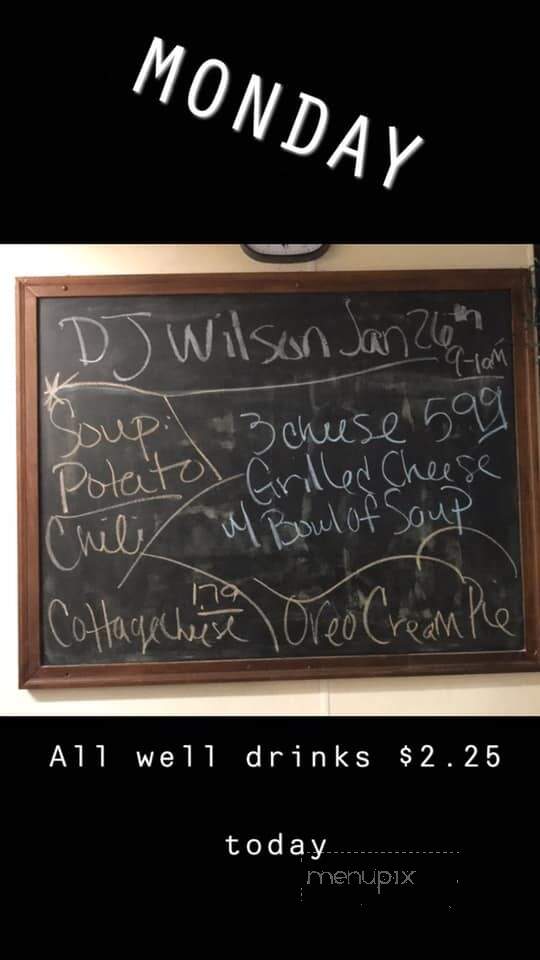 MONDAY
DJ Wilson Jan 26th
9-1am
Soup:
Potato
Chili
3 cheese 599
Grilled Cheese
w/ Bowl of Soup
179
Cottage cheese
Oreo Cream Pie
All well drinks $2.25
today
menupix